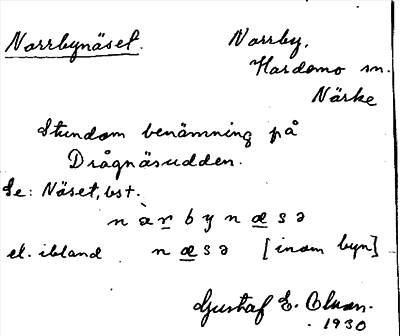 Norrbynäset.
Norrby,
Hardemo sn.
Närke
Stundom benämning på
Drågnäsudden.
Se: Näset, bst.
nàrbynæsə
el. ibland næsə [inom byn]
Gustaf E. Olsson.
1930